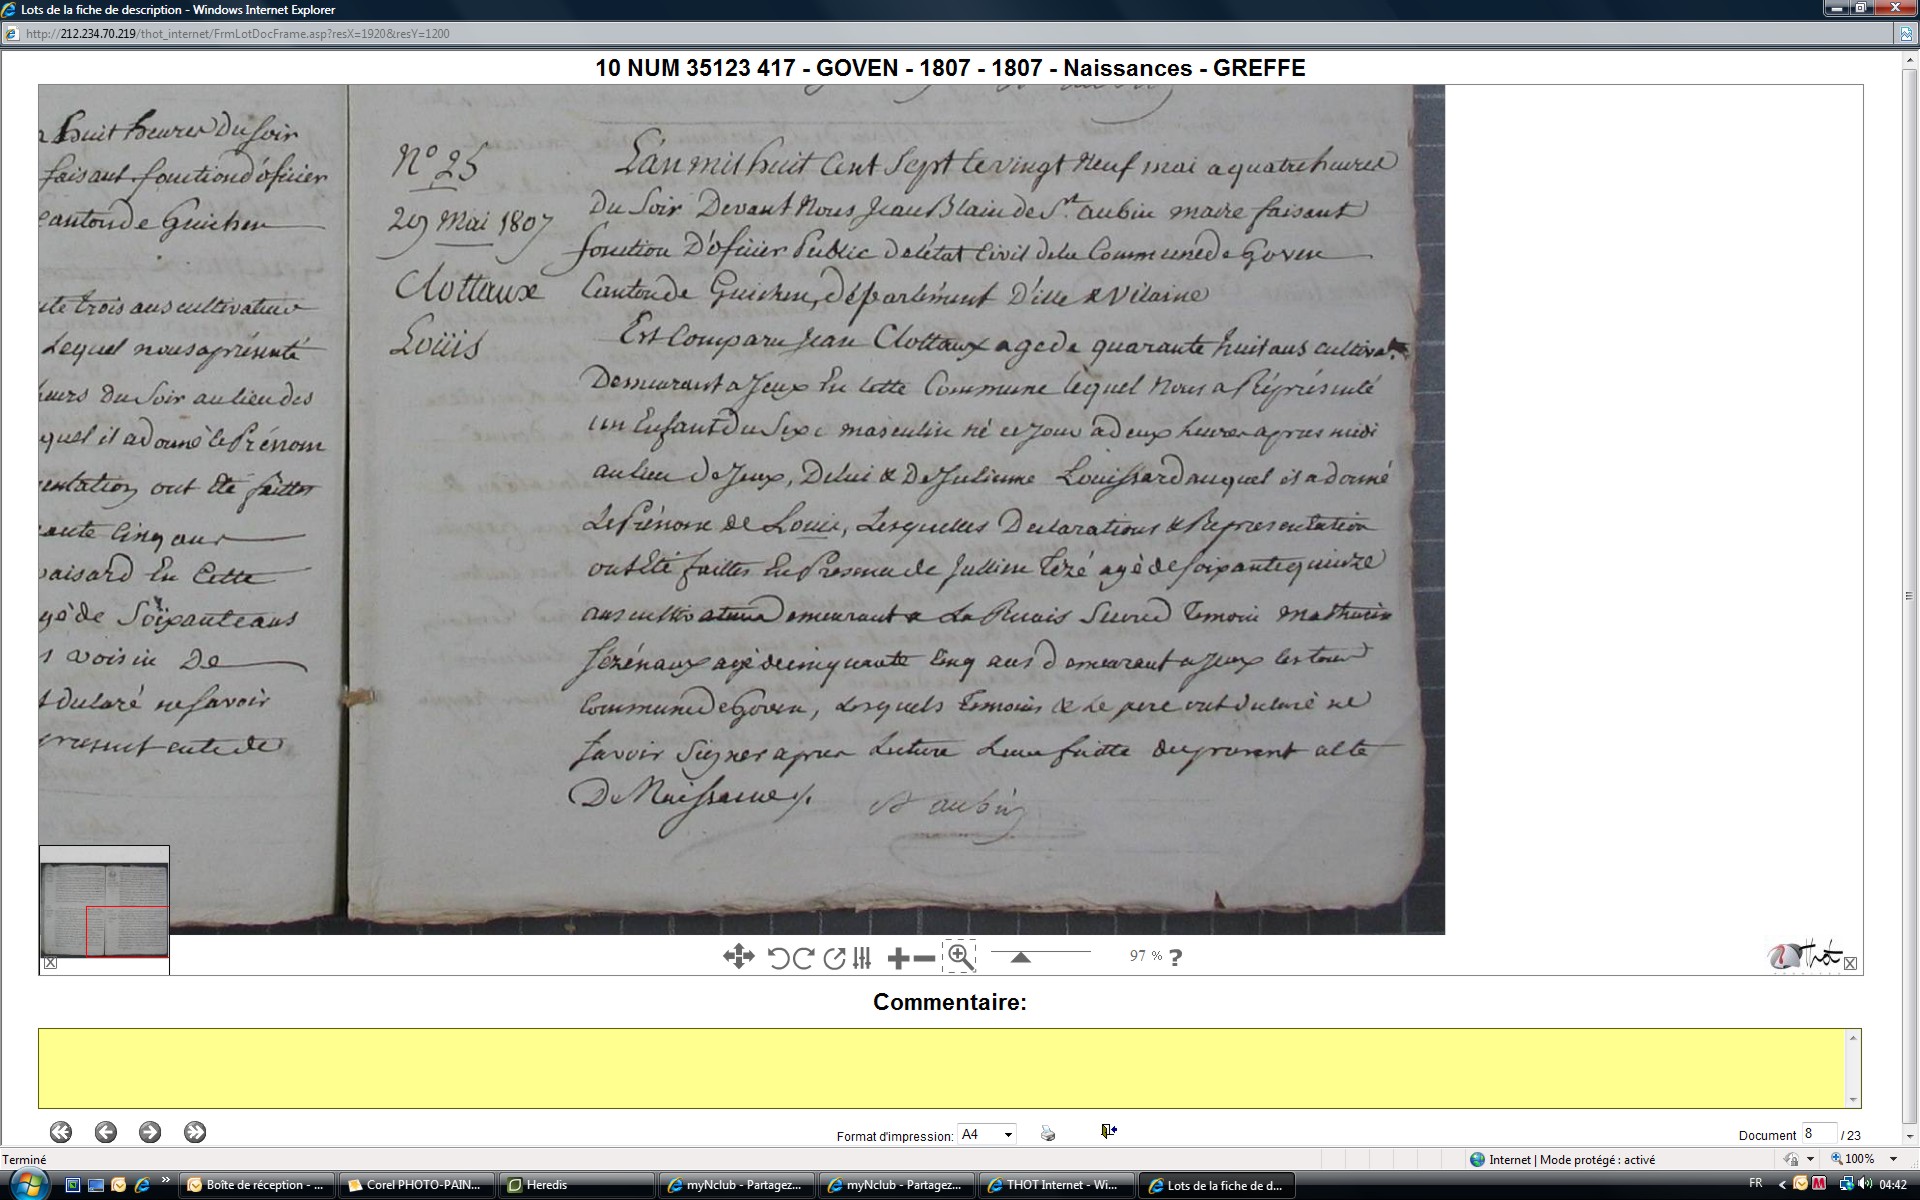 Lots de la fiche de description - Windows Internet Explorer
http://212.234.70.219/thot_internet/FrmLotDocFrame.asp?resX=1920&resY=1200
10 NUM 35123 417 - GOVEN - 1807 - 1807 - Naissances - GREFFE
huit heures du soir
faisant fonction d'oficier
canton de Guichen
trois ans cultivateur
Lequel nous a présenté
du Soir au lieu des
quel il a donné le Prénom
ont été faittes
cinq ans
En Cette
de Soixante ans
voisin De
declaré ne savoir
N° 25
29 Mai 1807
Clottaux
Loüis
L'an mil huit Cent Sept le vingt neuf mai a quatre heures
du Soir Devant Nous Jean Blain de St. aubin maire faisant
fonction D'oficier Public de l'état Civil de la Commune de Goven
Canton de Guichen, département D'ille & Vilaine
Est Comparu Jean Clottaux age de quarante huit ans cultivat.
Demeurant a Jeux En Cette Commune lequel Nous a Réprésenté
un Enfant du Sexe masculin né ce jour a deux heures apres midi
au lieu de Jeux, De lui & De Julienne Louissard auquel il a donné
Le Prénom de Louis, Lesquelles Declarations & Representation
ont Eté faittes En Presence de Jullien Tézé agé de soixante quinze
ans cultivateur demeurant a La Ruais Second Temoin Mathurin
agé de cinquante Cinq ans demeurant a Jeux
Commune de Goven, Lesquels Temoins & Le pere ont declaré ne
savoir Signer apres Lecture Leur faitte du present acte
De Naissance
St aubin
97 % ?
Thot
Commentaire:
Format d'impression: A4
Document 8 / 23
Terminé
Internet | Mode protégé : activé
100%
Boîte de réception - ...
Corel PHOTO-PAIN...
Heredis
myNclub - Partagez...
myNclub - Partagez...
THOT Internet - Wi...
Lots de la fiche de d...
FR
04:42